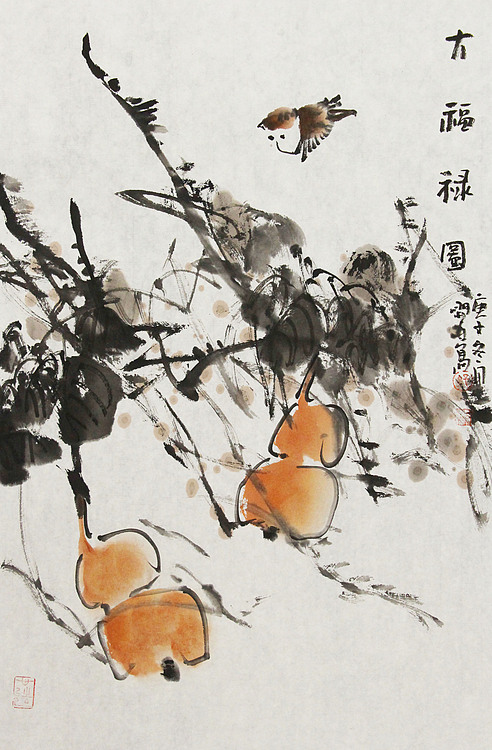 大福禄圖
庚子冬月